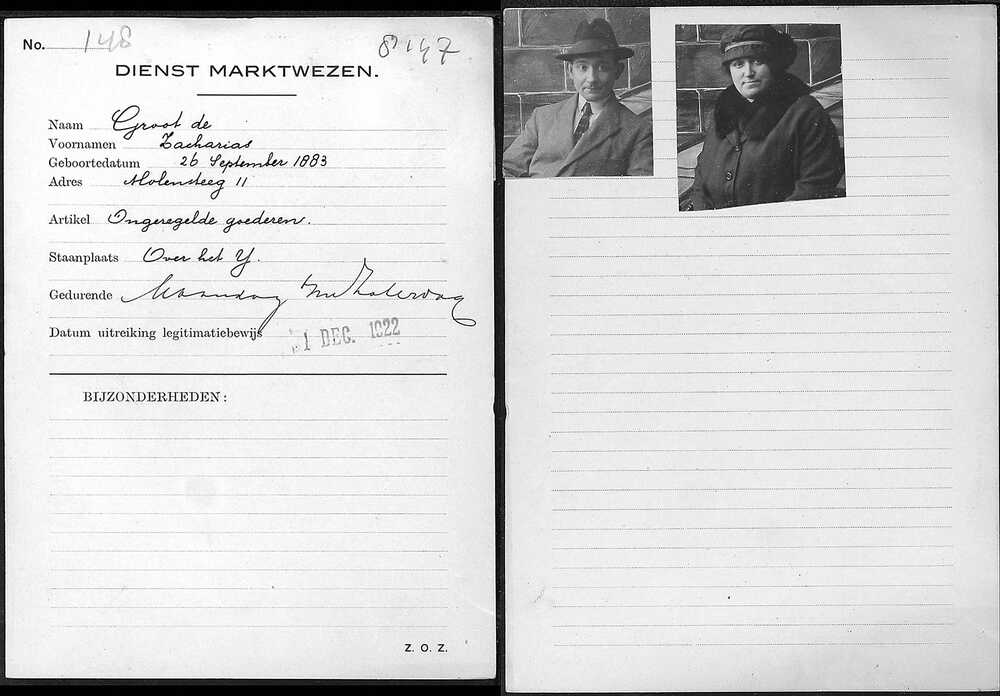 No. 148
8147
DIENST MARKTWEZEN.
Naam Groot de
Voornamen Zacharias
Geboortedatum 26 September 1883
Adres Molensteeg 11
Artikel Ongeregelde goederen.
Staanplaats Over het Y.
Gedurende Maandag t/m Zaterdag
Datum uitreiking legitimatiebewijs
1 DEC. 1922
BIJZONDERHEDEN:
Z. O. Z.